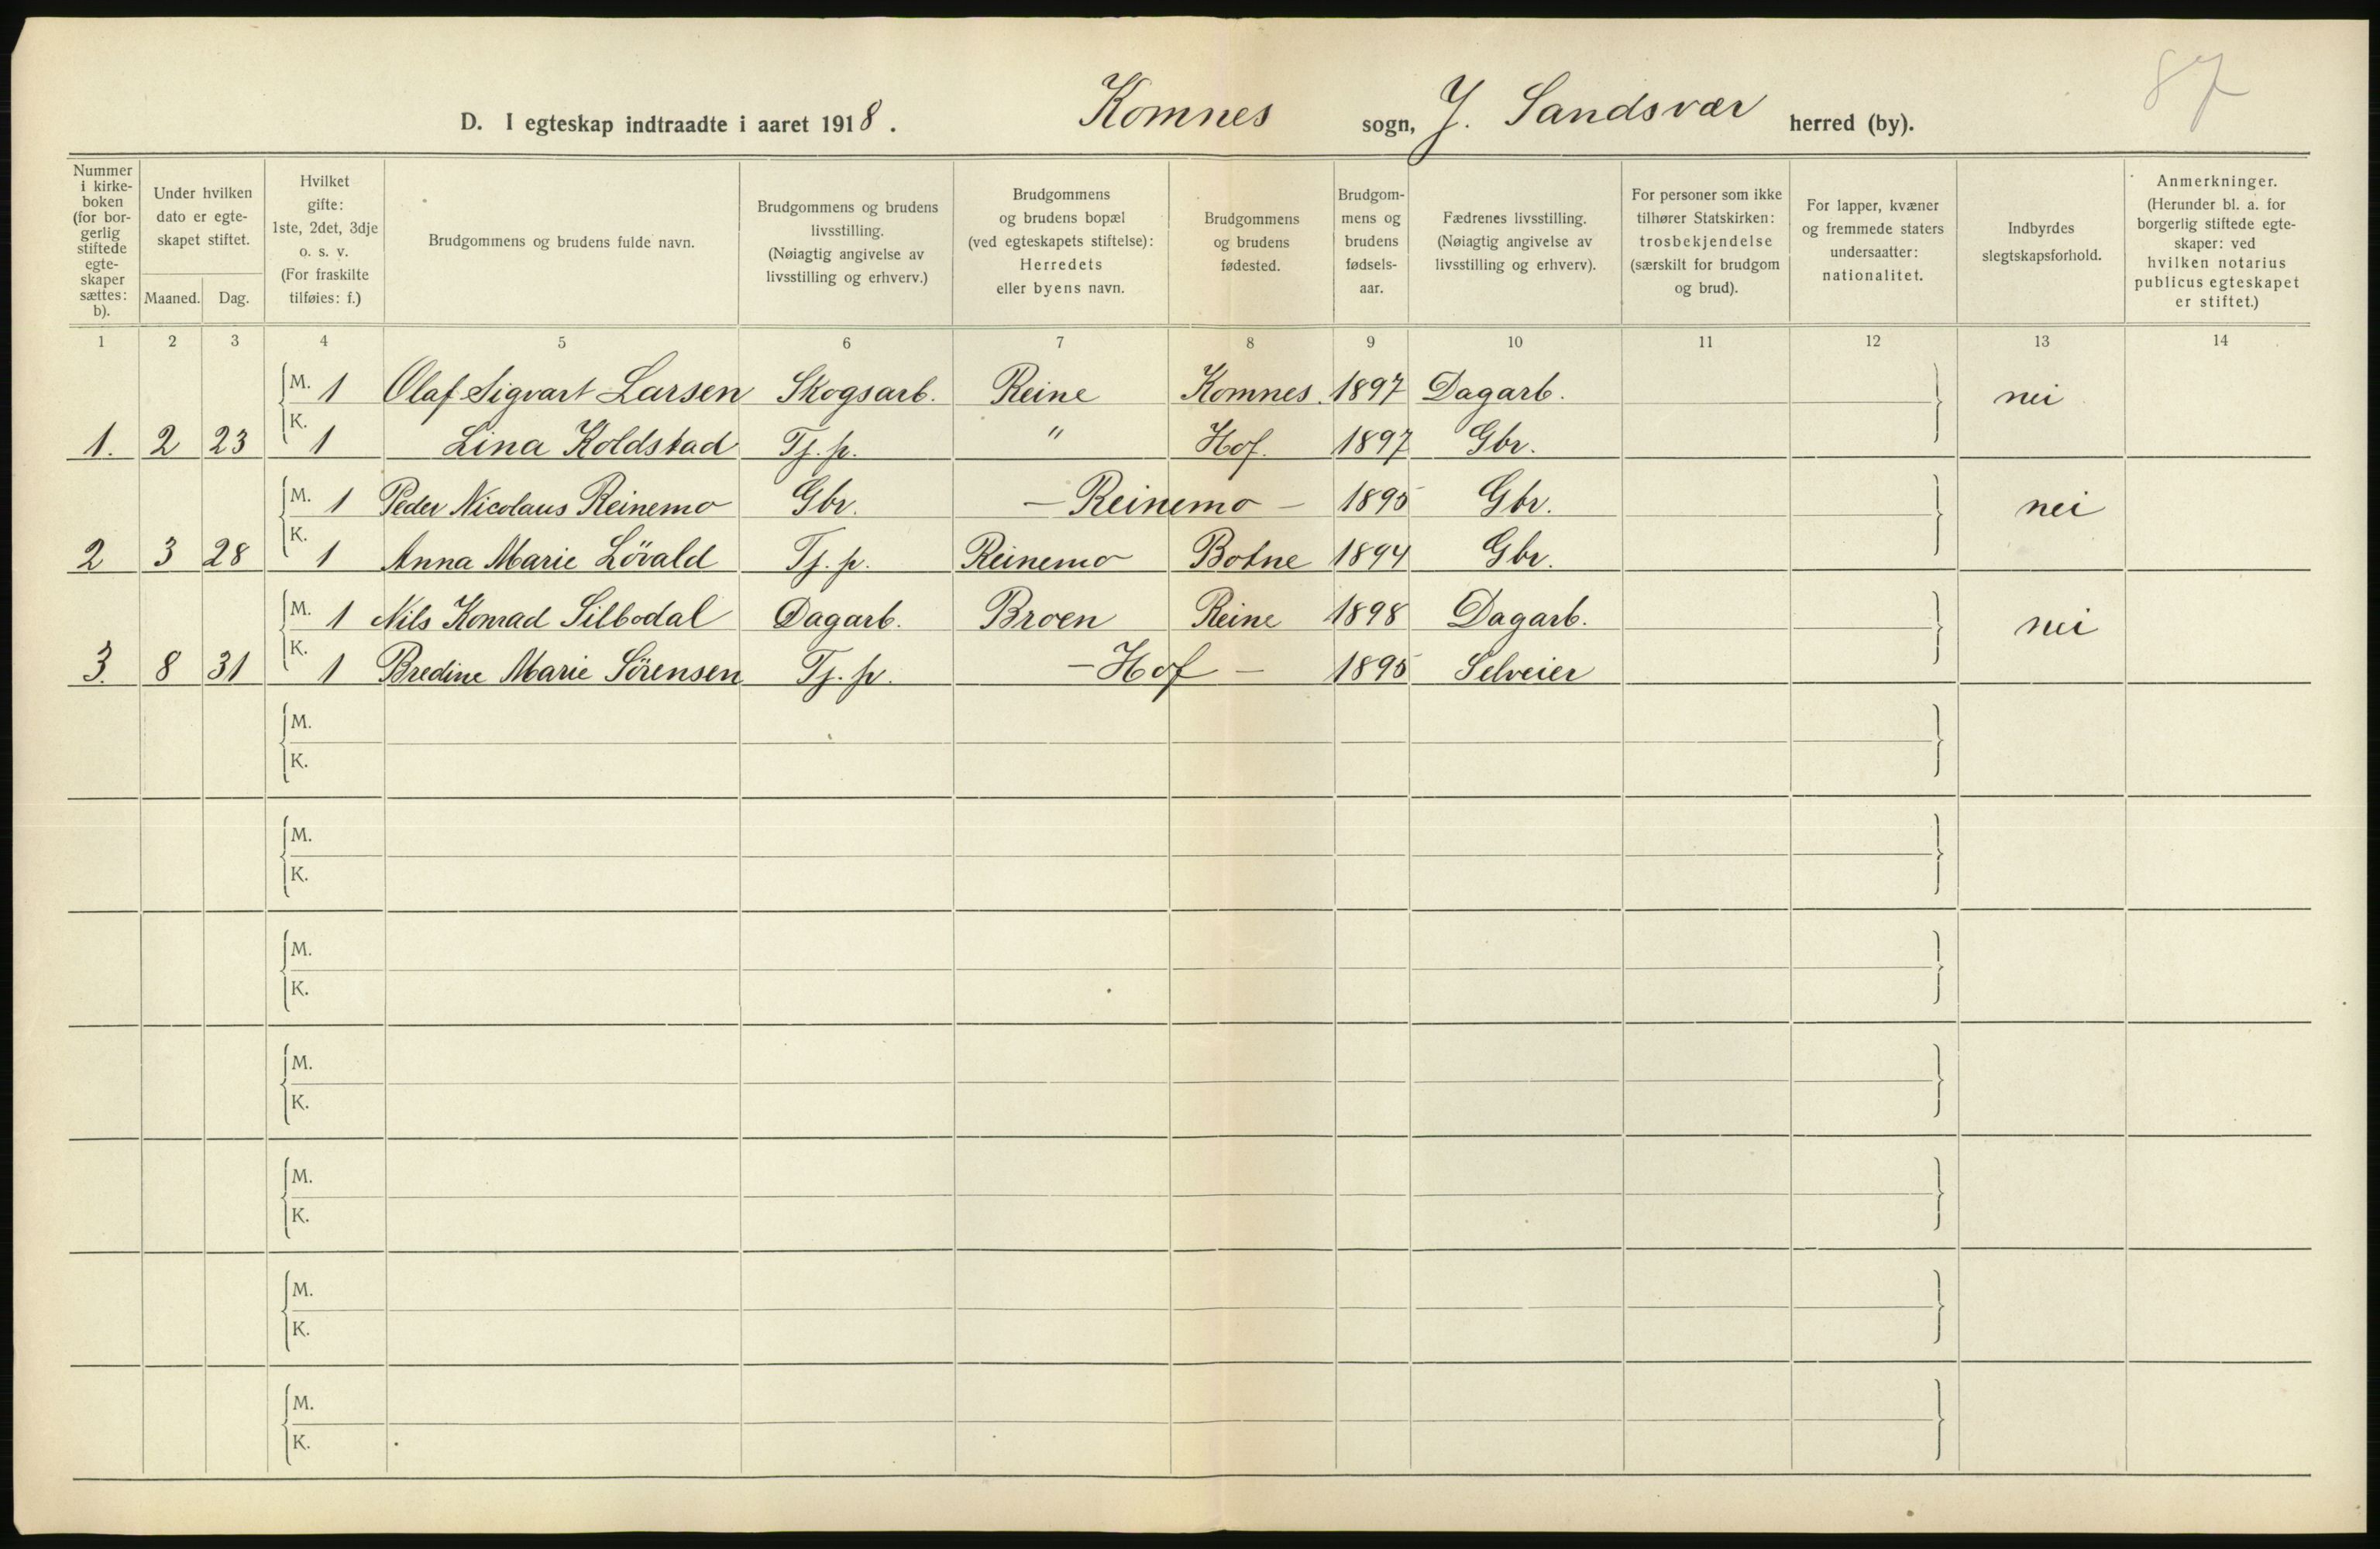 87
D. I egteskap indtraadte i aaret 1918. Komnes sogn, Y. Sandsvær herred (by).
Nummer i kirke- boken (for bor- gerlig stiftede egte- skaper sættes: b).
Under hvilken dato er egte- skapet stiftet.
Maaned. Dag.
Hvilket gifte: 1ste, 2det, 3dje o. s. v. (For fraskilte tilføies: f.)
Brudgommens og brudens fulde navn.
Brudgommens og brudens livsstilling. (Nøiagtig angivelse av livsstilling og erhverv.)
Brudgommens og brudens bopæl (ved egteskapets stiftelse): Herredets eller byens navn.
Brudgommens og brudens fødested.
Brudgom- mens og brudens fødsels- aar.
Fædrenes livsstilling. (Nøiagtig angivelse av livsstilling og erhverv).
For personer som ikke tilhører Statskirken: trosbekjendelse (særskilt for brudgom og brud).
For lapper, kvæner og fremmede staters undersaatter: nationalitet.
Indbyrdes slegtskapsforhold.
Anmerkninger. (Herunder bl. a. for borgerlig stiftede egte- skaper: ved hvilken notarius publicus egteskapet er stiftet.)
1 2 3 4 5 6 7 8 9 10 11 12 13 14
M. 1 Olaf Sigvart Larsen Skogsarb. Reine Komnes. 1897 Dagarb. nei
1. 2 23 K. 1 Lina Koldstad Tj. p. " Hof. 1897 Gbr.
M. 1 Peder Nicolaus Reinemo Gbr. — Reinemo — 1895 Gbr. nei
2 3 28 K. 1 Anna Marie Lövald Tj. p. Reinemo Botne 1894 Gbr.
M. 1 Nils Konrad Silbodal Dagarb. Broen Reine 1898 Dagarb. nei
3. 8 31 K. 1 Bredine Marie Sörensen Tj. p. — Hof — 1895 Selveier
M.
K.
M.
K.
M.
K.
M.
K.
M.
K.
M.
K.
M.
K.